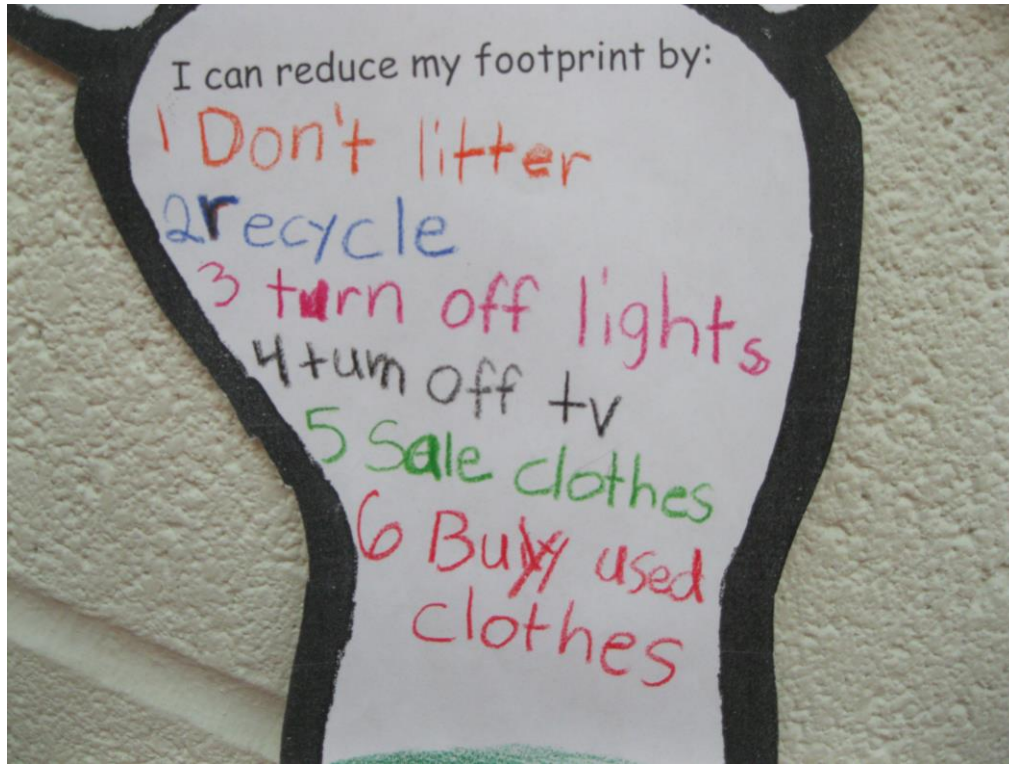 I can reduce my footprint by:
1 Don't litter
2 recycle
3 turn off lights
4 turn off tv
5 Sale clothes
6 Buy used
clothes